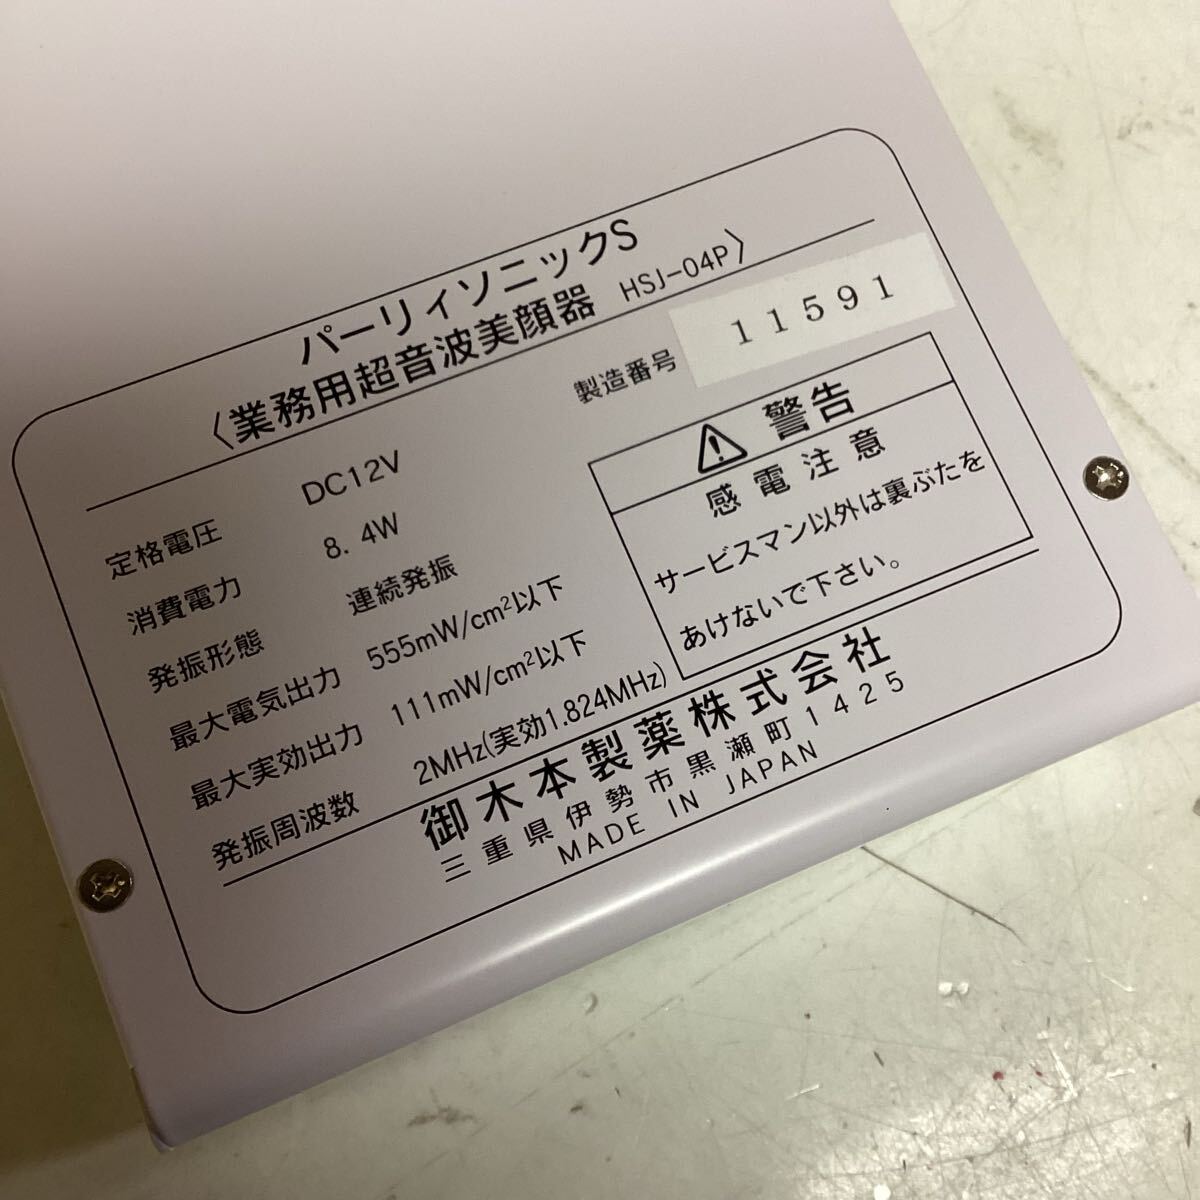 パーリィソニックS
〈業務用超音波美顔器 HSJ-04P〉
製造番号 11591
定格電圧 DC12V
消費電力 8.4W
発振形態 連続発振
最大電気出力 555mW/cm²以下
最大実効出力 111mW/cm²以下
発振周波数 2MHz(実効1.824MHz)
⚠警告
感電注意
サービスマン以外は裏ぶたを
あけないで下さい。
御木本製薬株式会社
三重県伊勢市黒瀬町1425
MADE IN JAPAN